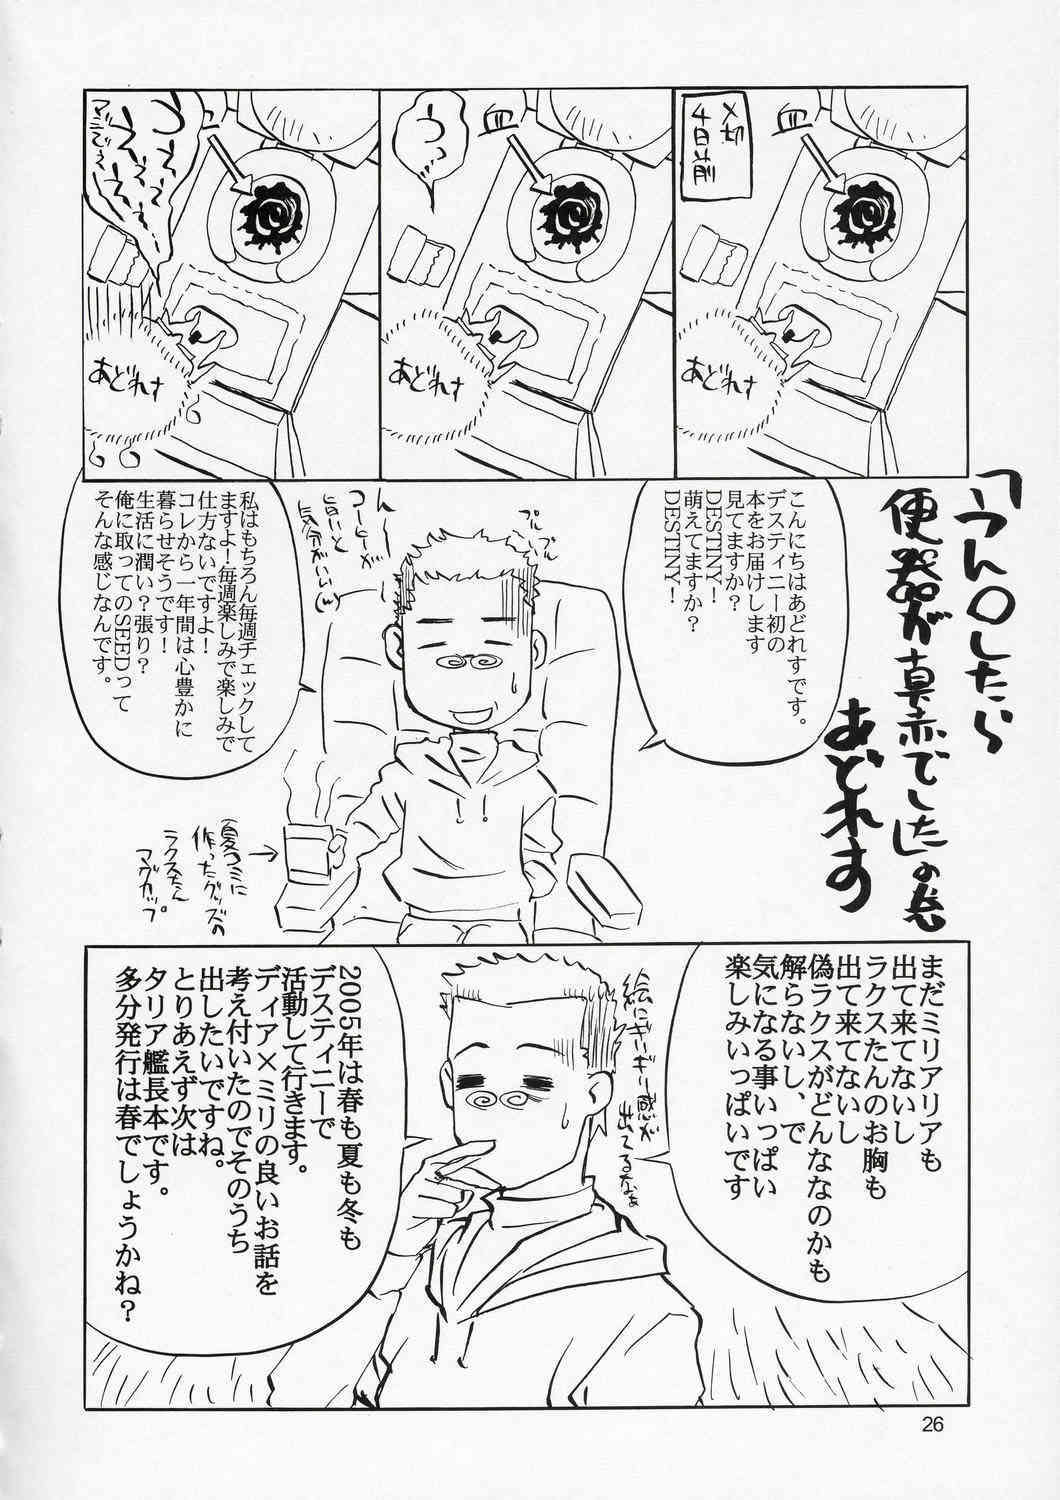 〆切
4日前
皿
あどれす
うっ…
皿
あどれす
うえええ
マジでぇぇ
あどれす
「うん○したら
便器が真赤でした」の巻
あどれす
こんにちはあどれすです。
デスティニー初の
本をお届けします
見てますか？
DESTINY！
萌えてますか？
DESTINY！
プルプル
コーヒーが
旨いと
気分がいい(w)
私はもちろん毎週チェックして
ますよ！毎週楽しみで楽しみで
仕方ないですよ！
コレから一年間は心豊かに
暮らせそうです！
生活に潤い？張り？
俺に取ってのSEEDって
そんな感じなんです。
夏コミに
作ったグッズの
ラクスたん
マグカップ。
まだミリアリアも
出て来てないし
ラクスたんのお胸も
出て来てないし
偽ラクスがどんななのかも
解らないし、で
気になる事いっぱい
楽しみいっぱいです
絵にギーギー感が
出てるなぁ
2005年は春も夏も冬も
デスティニーで
活動して行きます。
ディア×ミリの良いお話を
考え付いたのでそのうち
出したいですね。
とりあえず次は
タリア艦長本です。
多分発行は春でしょうかね？
26